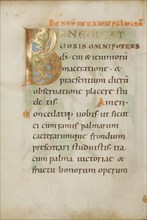 BENEDICAT
UOBIS OMNIPOTENS
DS. cui & ieiuniorum
maceratione &
praesentium dierum
obseruatione placere stu
detis. Amen.
Concedatq; uobis ut sicut
ei cum palmarum
caeterarumue frondium
praesentari studuistis ita
cum palma uictoriae &
fructu bonorum operum